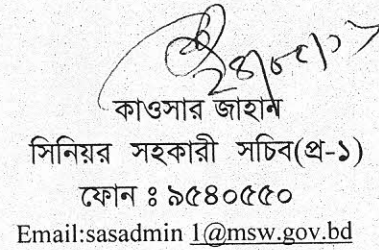 কাওসার জাহান
সিনিয়র সহকারী সচিব(প্র-১)
ফোন ঃ ৯৫৪০৫৫০
Email:sasadmin 1@msw.gov.bd